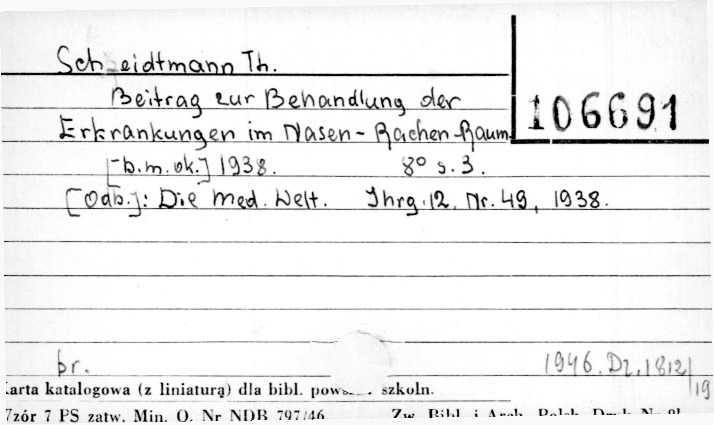 Scheidtmann Th.
106691
Beitrag zur Behandlung der
Erkrankungen im Nasen-Rachen-Raum
[b.m.ok.] 1938. 8° s. 3.
[Odb.]: Die Med. Welt. Jhrg. 12, Nr. 49, 1938.
br.
1946. Dz. 1812/19
arta katalogowa (z liniaturą) dla bibl. szkoln.
zór 7 PS zatw. Min. O. Nr NDR 797/46 Zw. Bibl. i Arch. Polsk.